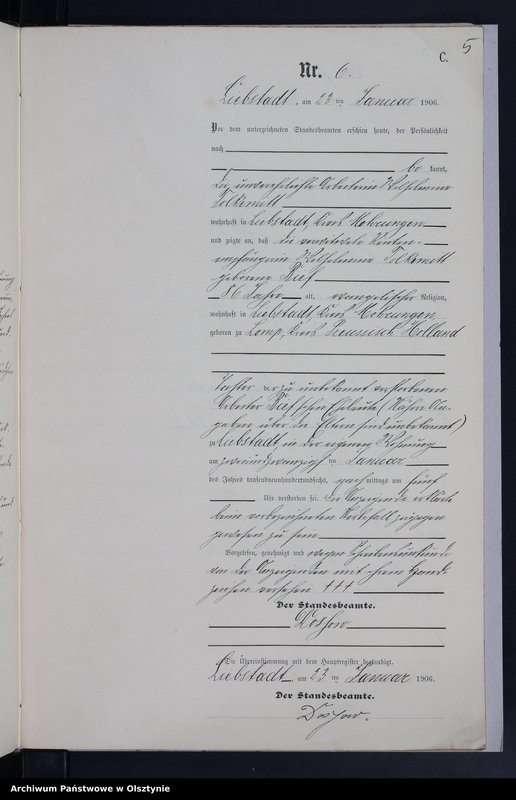 5
C.
Nr. 6.
Liebstadt, am 23 ten Januar 1906.
Vor dem unterzeichneten Standesbeamten erschien heute, der Persönlichkeit
nach
be kannt,
die unverehelichte Arbeiterin Wilhelmine
Tolkemitt
wohnhaft in Liebstadt, Kreis Mohrungen
und zeigte an, daß die verwitwete Renten-
empfängerin Wilhelmine Tolkemitt
geborene
86 Jahre alt, evangelischer Religion,
wohnhaft in Liebstadt, Kreis Mohrungen,
geboren zu Lomp, Kreis Preussisch Holland
Tochter der zu unbekannt verstorbenen
Arbeiter schen Eheleute (Nähere An-
gaben über die Eltern sind unbekannt)
zu Liebstadt, in der eigenen Wohnung
am zweiundzwanzigsten Januar
des Jahres tausendneunhundertundsechs, nachmittags um fünf
Uhr verstorben sei. Die Anzeigende erklärte
beim vorbezeichneten Sterbefall zugegen
gewesen zu sein.
Vorgelesen, genehmigt und wegen Schreibensunkunde
von der Anzeigenden mit ihrem Hand-
zeichen versehen +++
Der Standesbeamte.
Dossow
Die Übereinstimmung mit dem Hauptregister beglaubigt.
Liebstadt am 23 ten Januar 1906.
Der Standesbeamte.
Dossow.
Archiwum Państwowe w Olsztynie